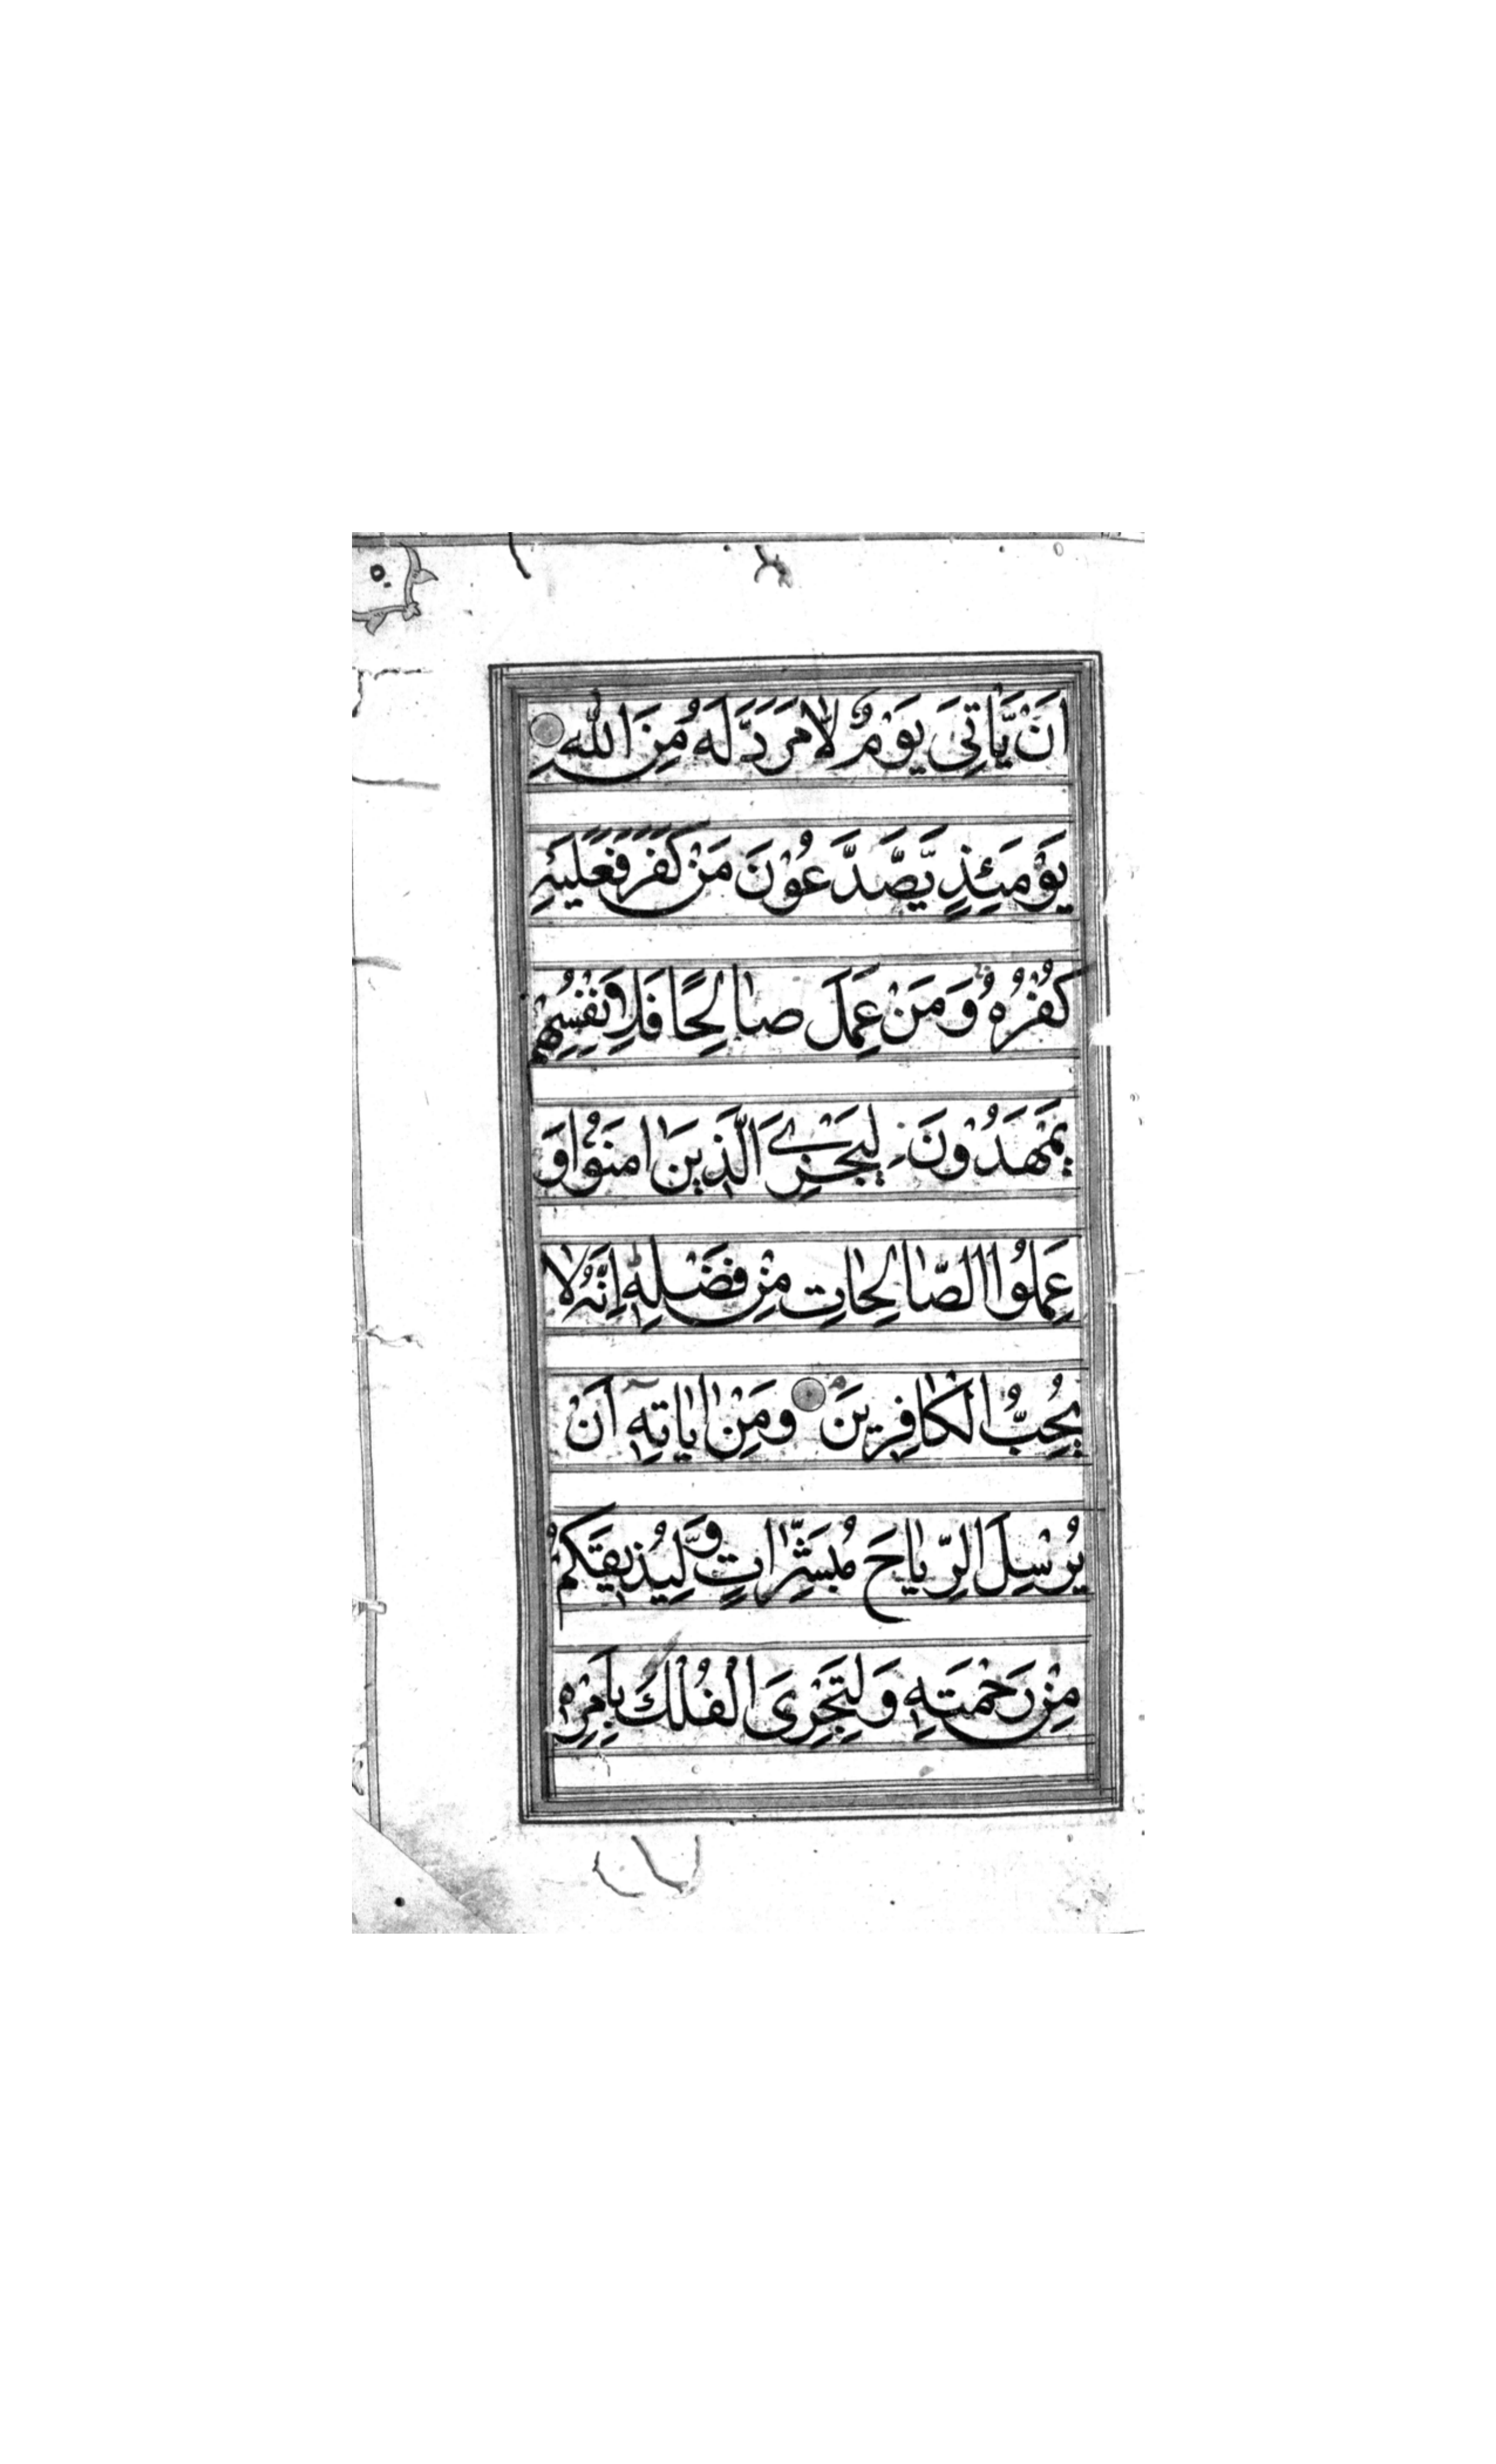 اَنْ يَّاْتِيَ يَوْمٌ لَّا مَرَدَّ لَهُ مِنَ اللّٰهِ
يَوْمَئِذٍ يَّصَّدَّعُوْنَ مَنْ كَفَرَ فَعَلَيْهِ
كُفْرُهُ وَمَنْ عَمِلَ صَالِحًا فَلِاَنْفُسِهِمْ
يَمْهَدُوْنَ لِيَجْزِيَ الَّذِيْنَ اٰمَنُوْا وَ
عَمِلُوا الصَّالِحَاتِ مِنْ فَضْلِهٖ اِنَّهُ لَا
يُحِبُّ الْكَافِرِيْنَ وَمِنْ اٰيَاتِهٖ اَنْ
يُرْسِلَ الرِّيَاحَ مُبَشِّرَاتٍ وَّلِيُذِيْقَكُمْ
مِنْ رَحْمَتِهٖ وَلِتَجْرِيَ الْفُلْكُ بِاَمْرِهٖ